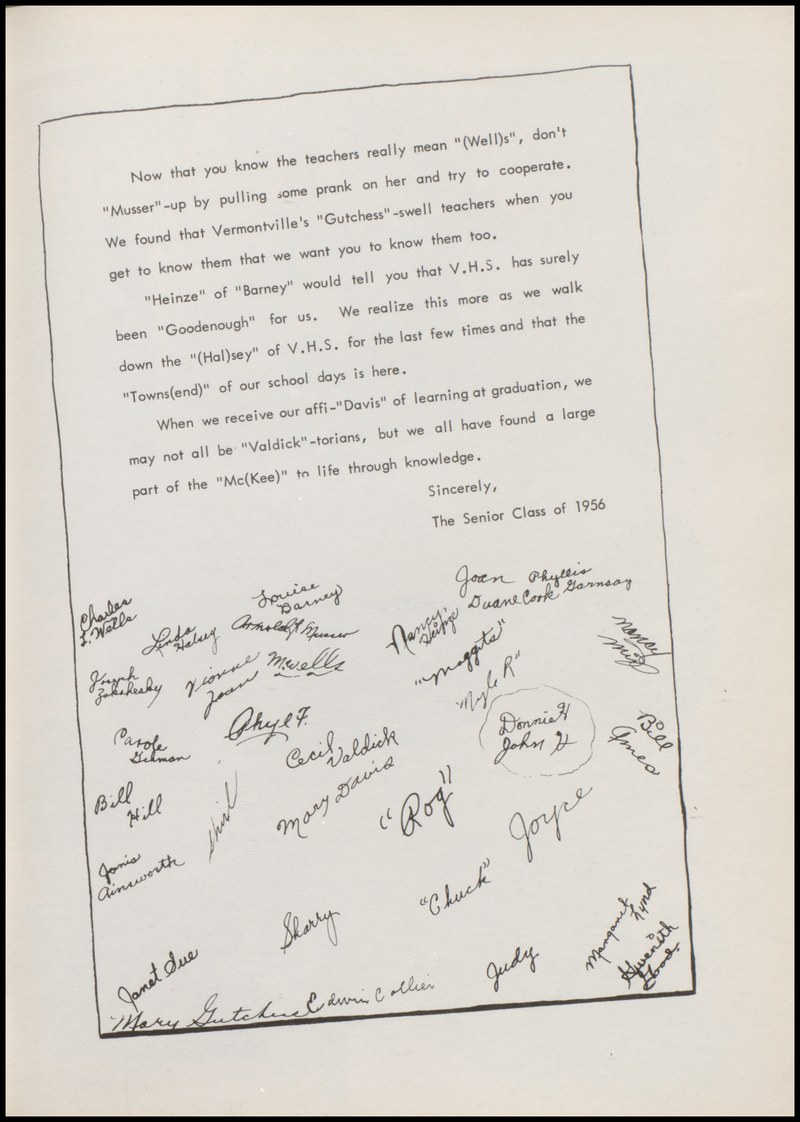 Now that you know the teachers really mean "(Well)s", don't
"Musser"-up by pulling some prank on her and try to cooperate.
We found that Vermontville's "Gutchess"-swell teachers when you
get to know them that we want you to know them too.
"Heinze" of "Barney" would tell you that V.H.S. has surely
been "Goodenough" for us. We realize this more as we walk
down the "(Hal)sey" of V.H.S. for the last few times and that the
"Towns(end)" of our school days is here.
When we receive our affi-"Davis" of learning at graduation, we
may not all be "Valdick"-torians, but we all have found a large
part of the "Mc(Kee)" to life through knowledge.
Sincerely,
The Senior Class of 1956
Joan Phyllis
Duane Cook Garnsay
Louise
Barney
Charles
L. Wells
Linda
Halsey
Arnold Musser
Nancy
Heinze
"Maggots"
Nancy
Joseph
Vionne
Joan
M. Wells
"Myle R"
Phyl F.
Donnie H
John H
Bill
Ames
Carole
Gehman
Cecil
Valdick
Mary Davis
Bill
Hill
Shirl
"Rog"
Joyce
Janis
Ainsworth
"Chuck"
Sharry
Margaret
Lynd
Janet Sue
Judy
Mary Gutchess
Edwin Collier